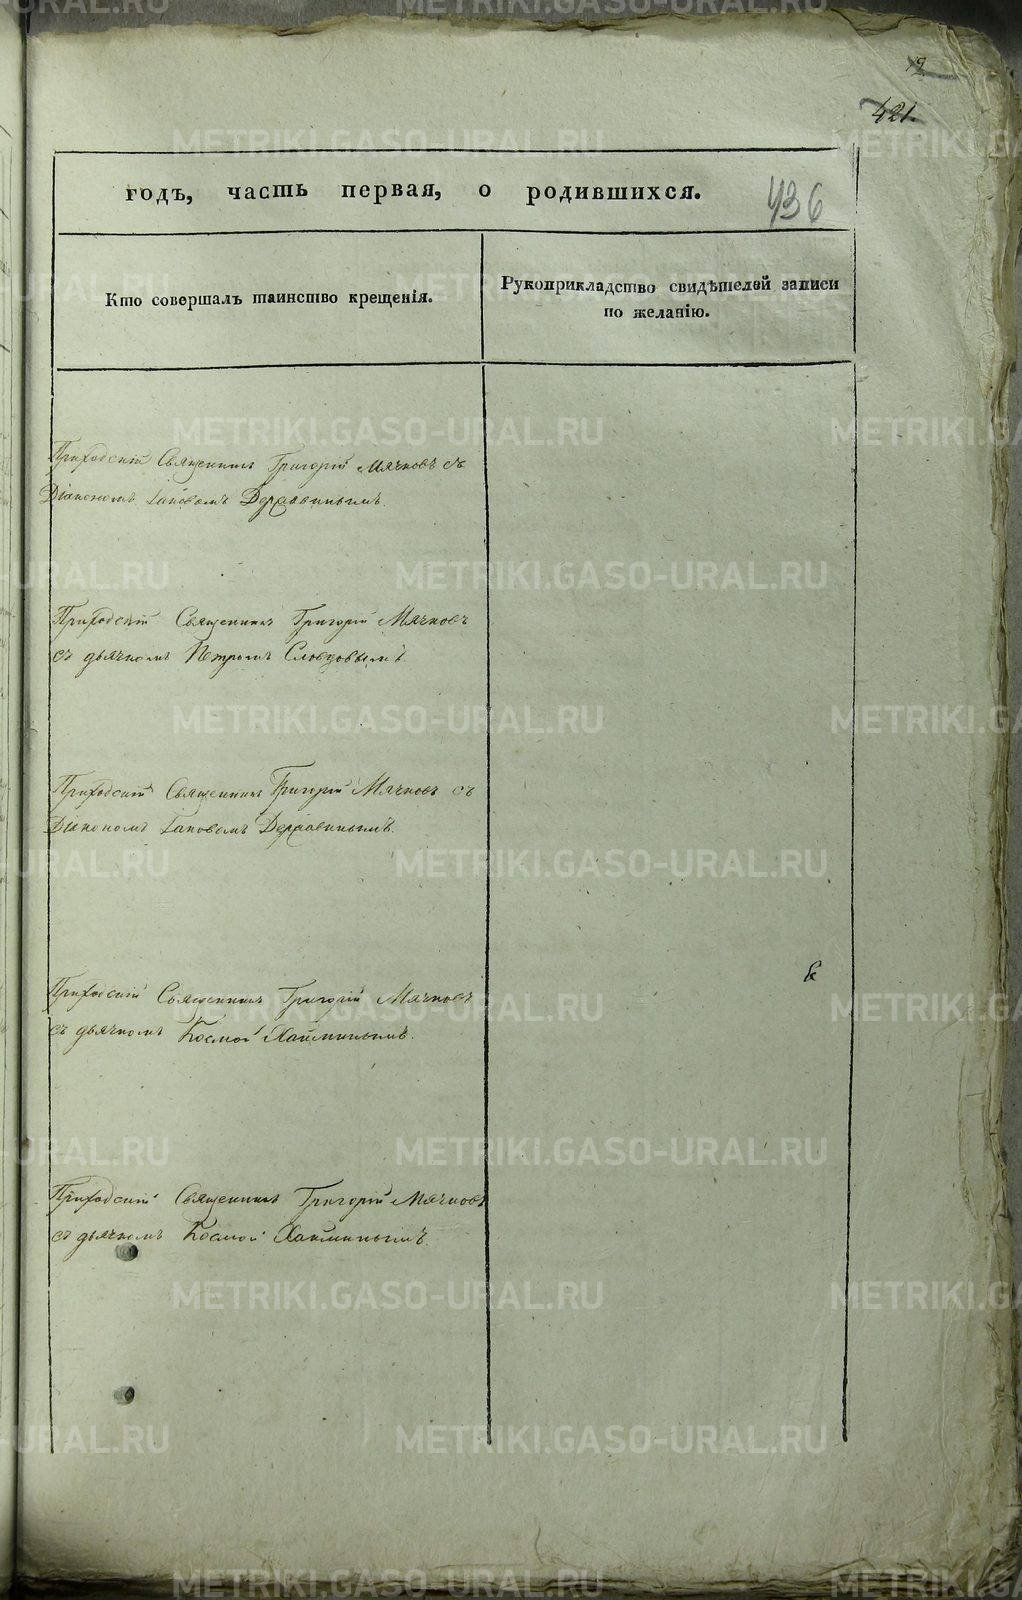 12
421.
годъ, часть первая, о родившихся.
436
Кто совершалъ таинство крещенія.
Рукоприкладство свидѣтелей записи
по желанію.
Приходскій Священникъ Григорій Мячковъ съ
Діакономъ Іаковомъ Державинымъ.
Приходскій Священникъ Григорій Мячковъ
съ дьячкомъ Петромъ Словцовымъ.
Приходскій Священникъ Григорій Мячковъ съ
Діакономъ Іаковомъ Державинымъ.
Приходскій Священникъ Григорій Мячковъ
съ дьячкомъ Космой Хайминымъ.
Приходскій Священникъ Григорій Мячковъ
съ дьячкомъ Космой Хайминымъ.
METRIKI.GASO-URAL.RU